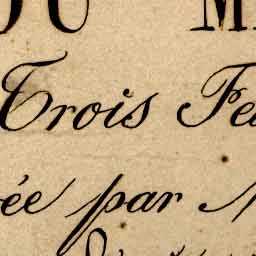 OU M
Trois Fe
ée par